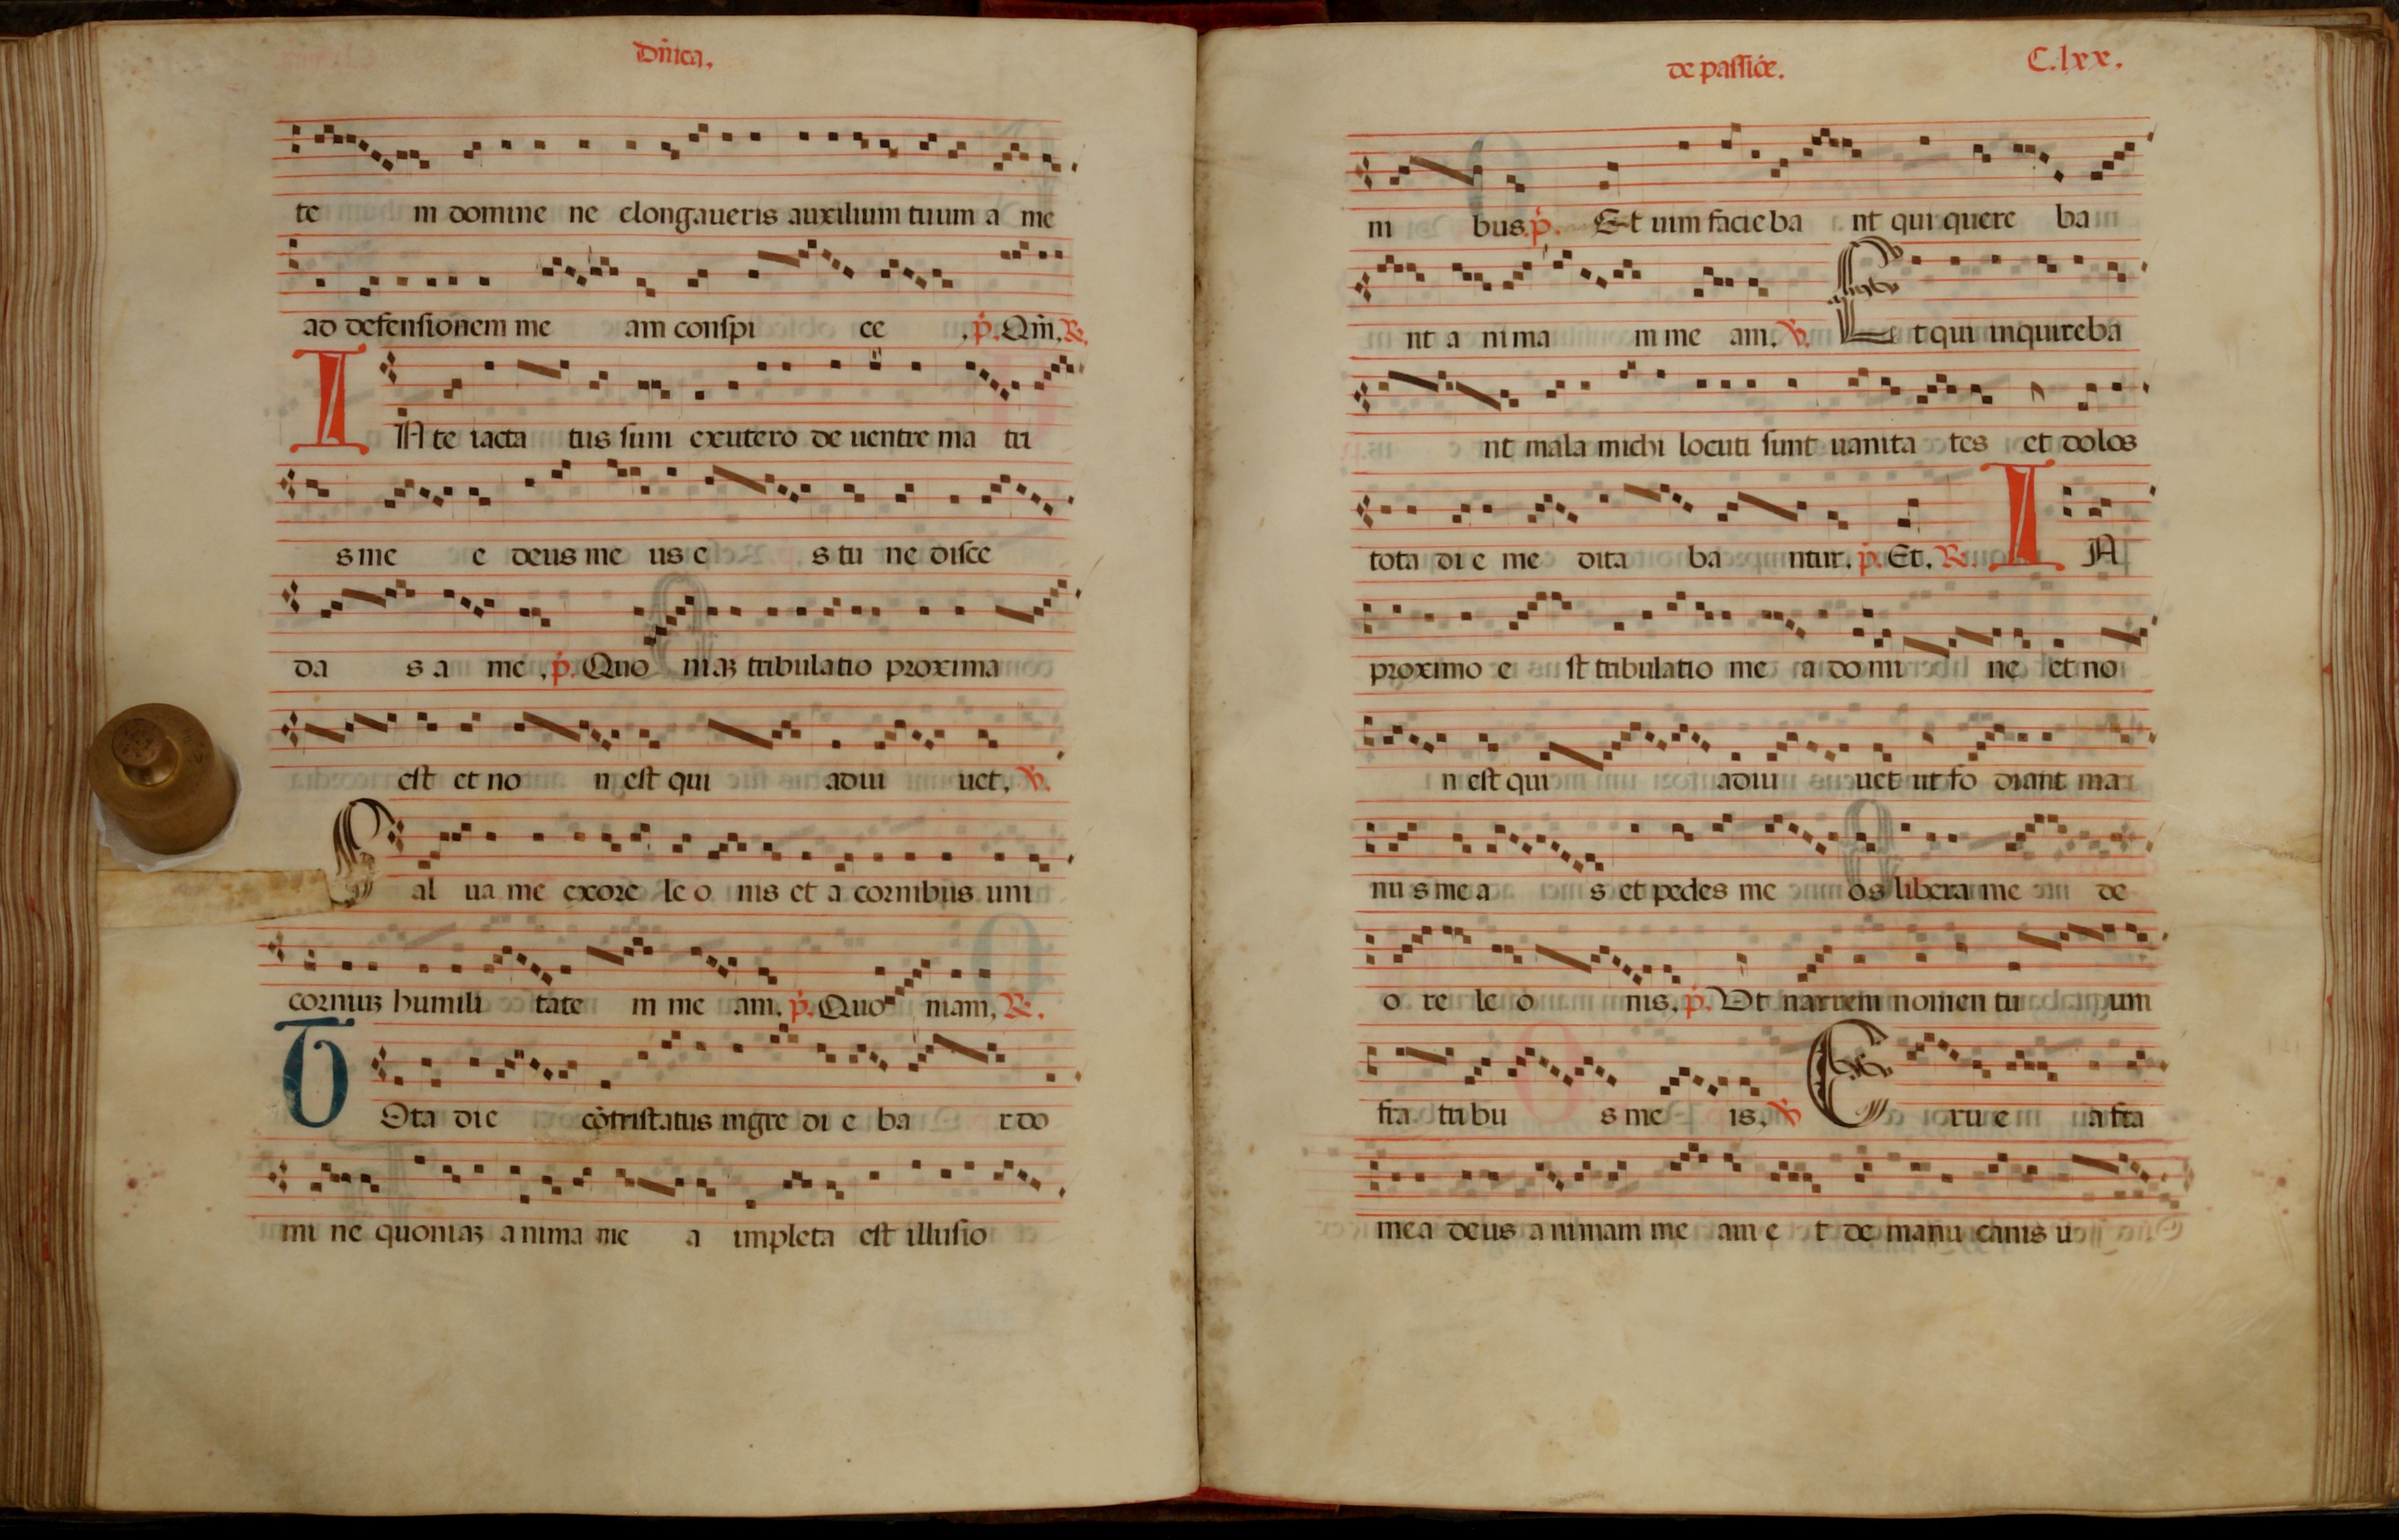 Dn̄ica.
te m domine ne elongaueris auxilium tuum a me
ad defensionem me am conspi ce , p̄. Qm̄. R.
IN te iacta tus sum exutero de uentre ma tri
s me e deus me us e s tu ne disce
da s a me , p̄. Quo niaꝫ tribulatio proxima
est et no n est qui adiu uet, V.
Sal ua me exore le o nis et a cornibus uni
cornuiꝫ humili tate m me am. p̄. Quo niam, R.
TOta die cōtristatus ingre di e ba r do
mi ne quoniaꝫ anima me a impleta est illusio
de passiōe. C.lxx.
ni bus. p̄. Et uim facie ba nt qui quere ba
nt a nima m me am. V. Et qui inquireba
nt mala michi locuti sunt uanita tes et dolos
tota di e me dita ba ntur. p̄. Et. R. IN
proximo e st tribulatio me a domi ne et no
n est qui adiu uet ut fo diant ma
nus mea s et pedes me os libera me de
o re le o nis. p̄. Ut narrem nomen tu um
fra tribu s me is. V. Eru e a fra
mea deus animam me am e t de manu canis u